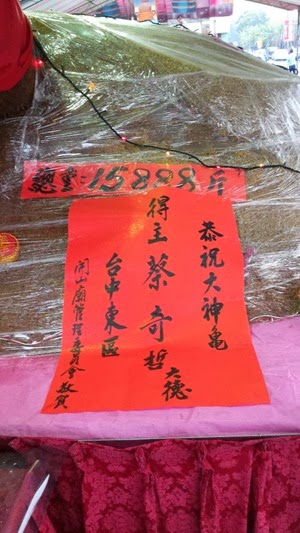 總重:15898斤
恭祝大神龜
得主蔡奇哲大德
台中東區
開山廟管理委員會敬賀